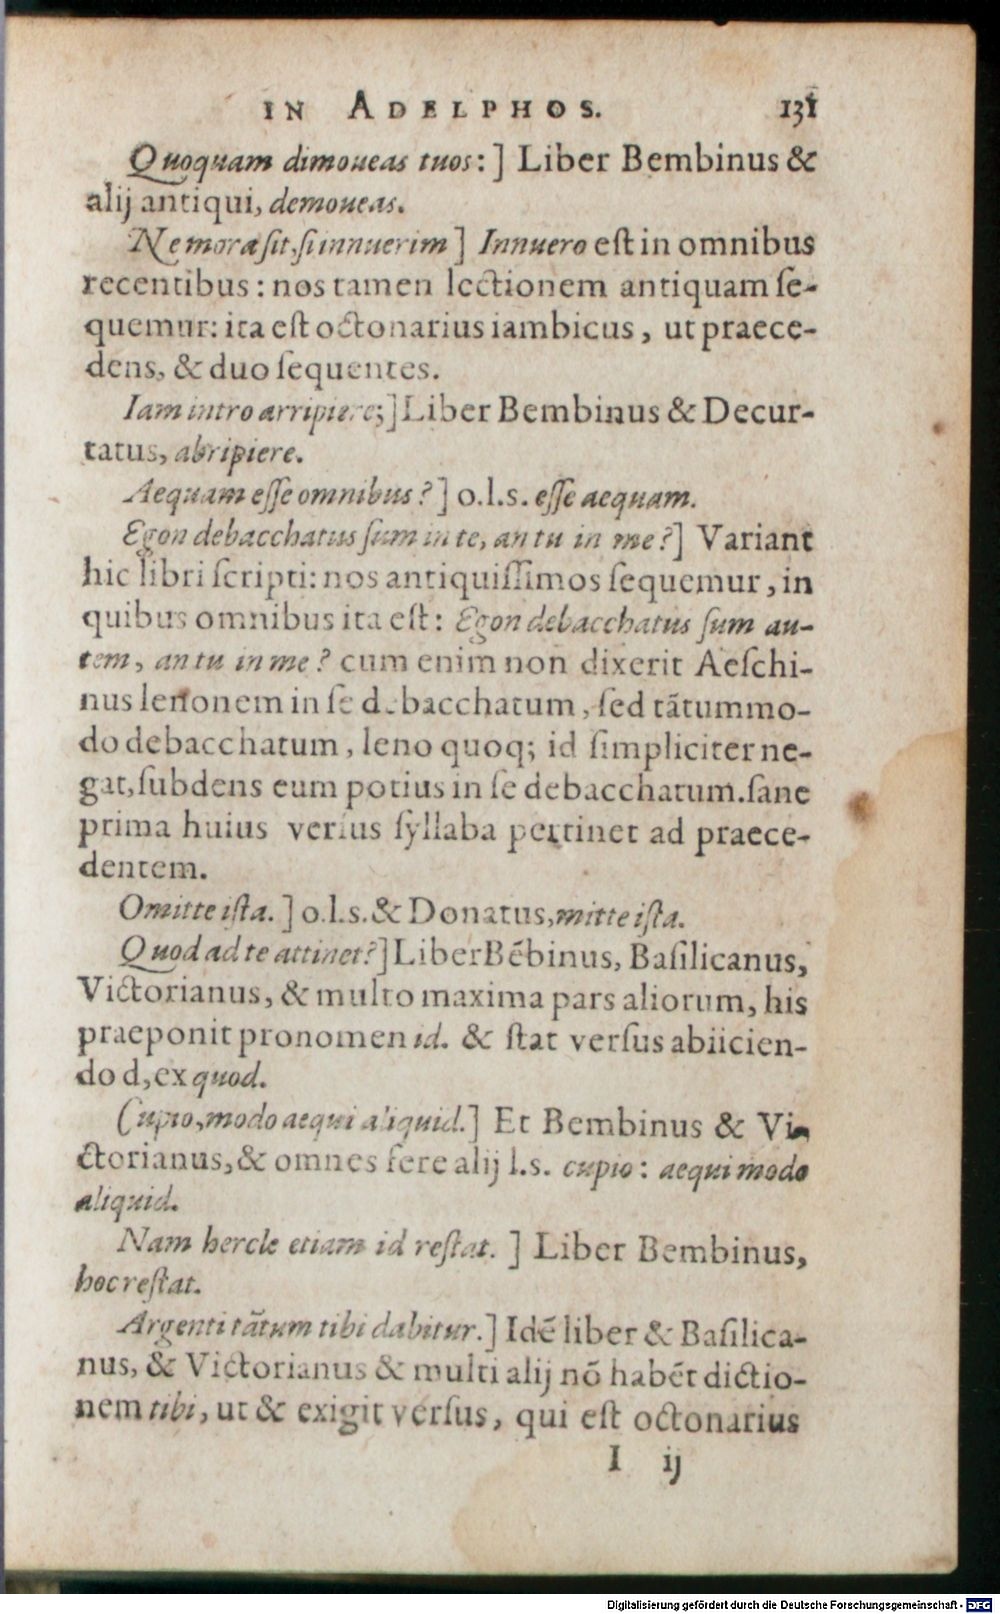 IN ADELPHOS. 131
Quoquam dimoueas tuos:] Liber Bembinus &
alij antiqui, demoueas.
Ne mora ſit, ſi innuerim] Innuero eſt in omnibus
recentibus: nos tamen lectionem antiquam ſe-
quemur: ita eſt octonarius iambicus, ut praece-
dens, & duo ſequentes.
Iam intro arripiere;] Liber Bembinus & Decur-
tatus, abripiere.
Aequam eſſe omnibus?] o.l.s. eſſe aequam.
Egon debacchatus ſum in te, an tu in me?] Variant
hic libri ſcripti: nos antiquiſſimos ſequemur, in
quibus omnibus ita eſt: Egon debacchatus ſum au-
tem, an tu in me? cum enim non dixerit Aeſchi-
nus lenonem in ſe debacchatum, ſed tãtummo-
do debacchatum, leno quoq; id ſimpliciter ne-
gat, ſubdens eum potius in ſe debacchatum. ſane
prima huius verſus ſyllaba pertinet ad praece-
dentem.
Omitte iſta.] o.l.s. & Donatus, mitte iſta.
Quod ad te attinet?] Liber Bẽbinus, Baſilicanus,
Victorianus, & multo maxima pars aliorum, his
praeponit pronomen id. & ſtat verſus abiicien-
do d, ex quod.
Cupio, modo aequi aliquid.] Et Bembinus & Vi-
ctorianus, & omnes fere alij l.s. cupio: aequi modo
aliquid.
Nam hercle etiam id reſtat.] Liber Bembinus,
hoc reſtat.
Argenti tãtum tibi dabitur.] Idẽ liber & Baſilica-
nus, & Victorianus & multi alij nõ habẽt dictio-
nem tibi, ut & exigit verſus, qui eſt octonarius
I ij
Digitalisierung gefördert durch die Deutsche Forschungsgemeinschaft - DFG